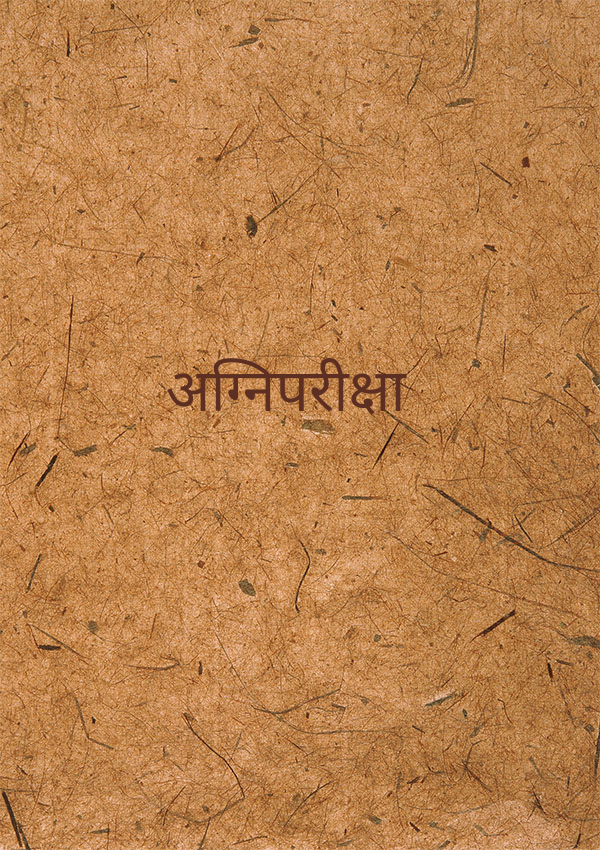 अग्निपरीक्षा